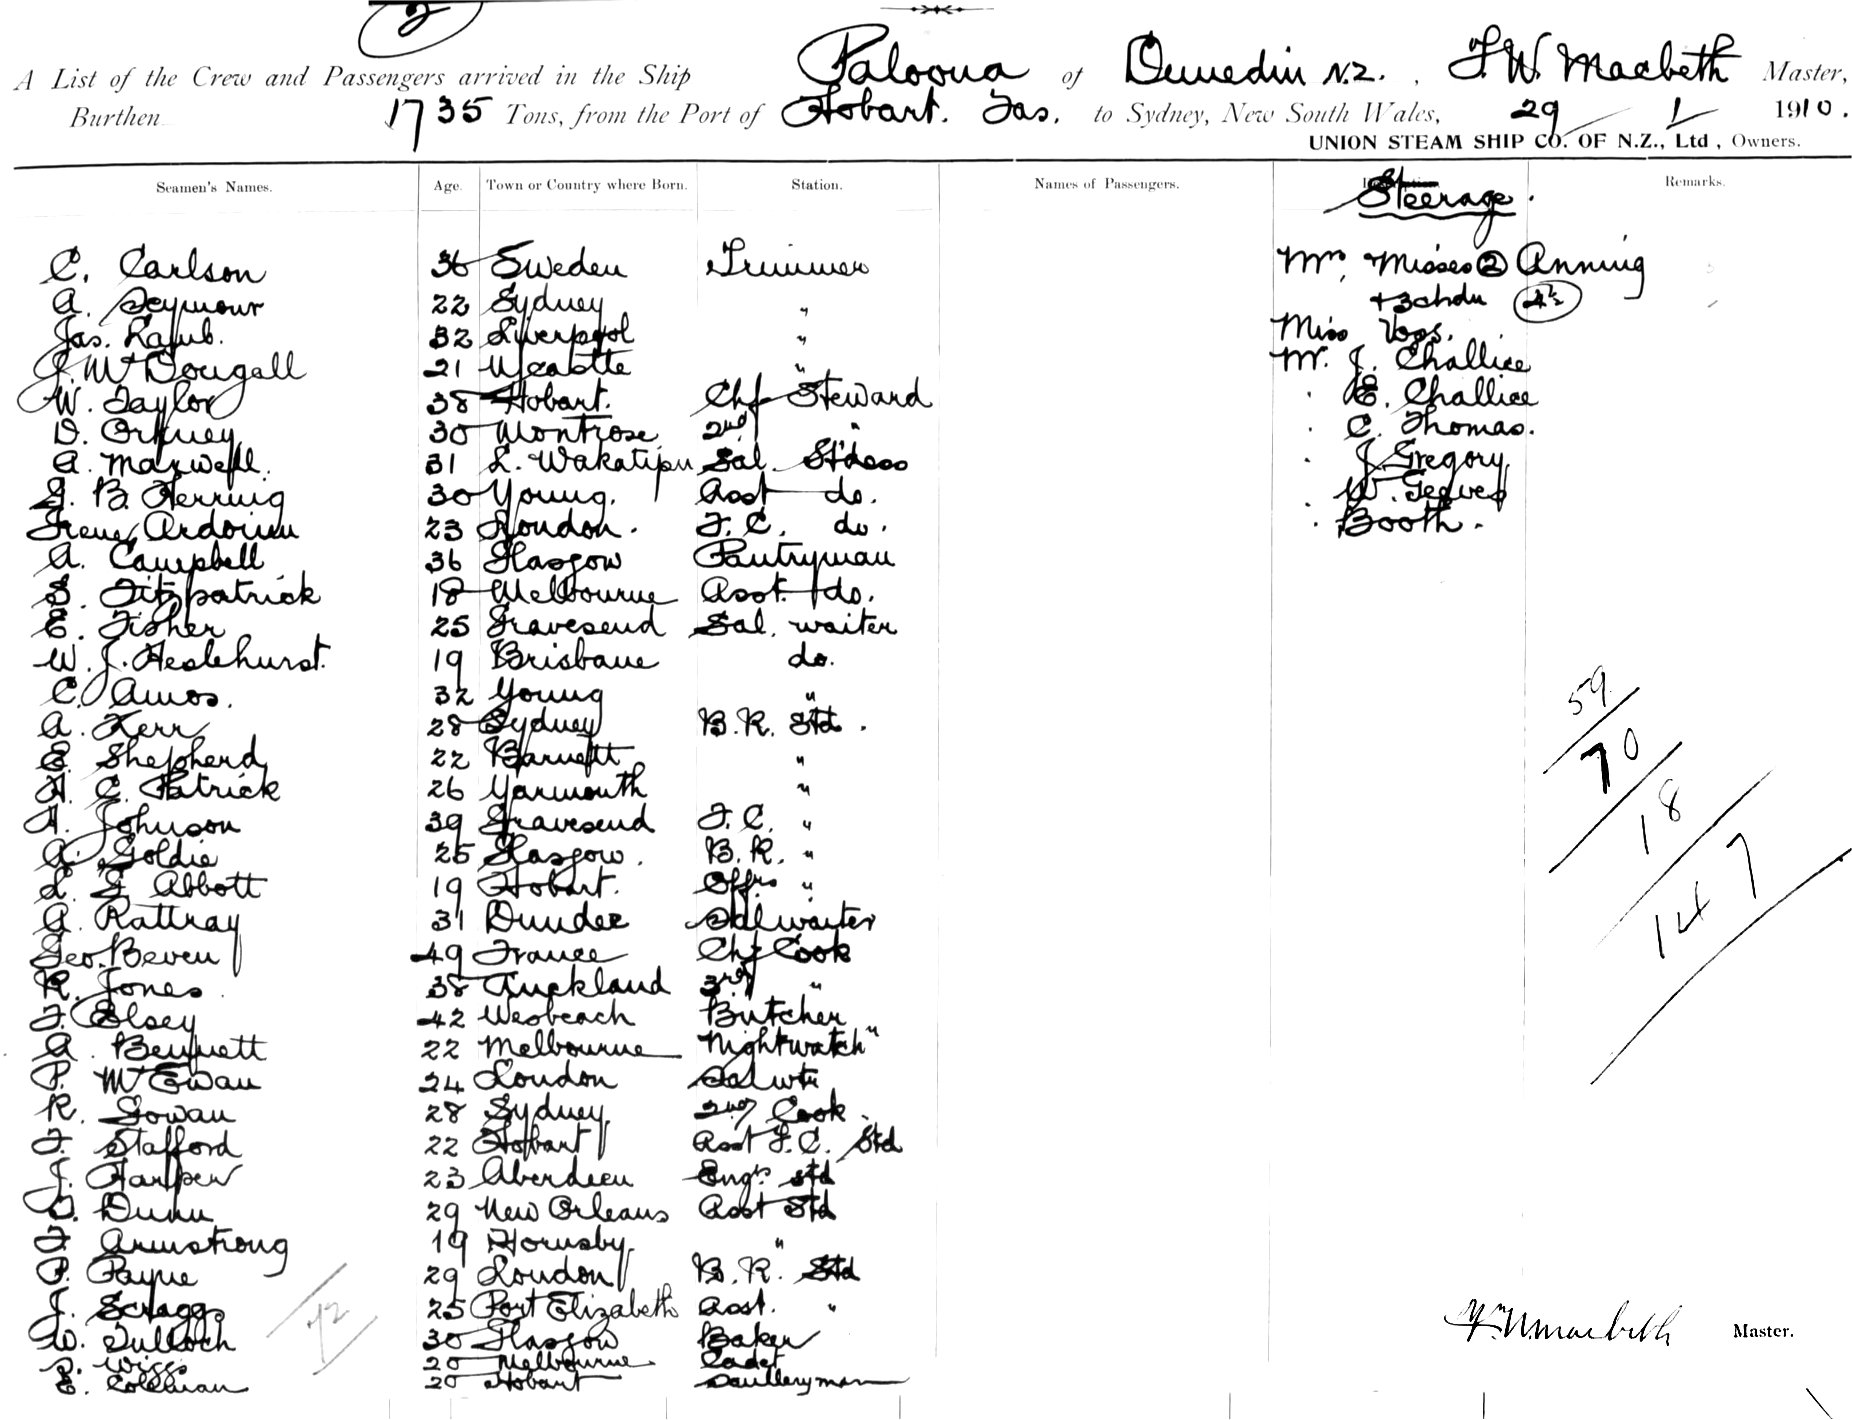 2
A List of the Crew and Passengers arrived in the Ship Paloona of Dunedin N.Z., F.W. Macbeth Master,
Burthen 1735 Tons, from the Port of Hobart. Tas. to Sydney, New South Wales, 29 / 1 / 1910.
UNION STEAM SHIP CO. OF N.Z., Ltd., Owners.
Seamen's Names. Age. Town or Country where Born. Station. Names of Passengers. Remarks.
Steerage.
C. Carlson 36 Sweden Trimmer Mrs, Misses 2 Anning
A. Seymour 22 Sydney " + 3 chdn 4½
Jas. Lamb. 32 Liverpool " Miss Voss.
J. McDougall 21 " Mr. J. Challice
W. Taylor 38 Hobart. Chf Steward . E. Challice
D. Orkney 30 Montrose 2nd " . C. Thomas.
A. Maxwell. 31 L. Wakatipu Sal. St'dess . J. Gregory
G. B. Herring 30 Young. Asst do. . W. Teeves
Irene Ardouin 23 London. F.C. do. . Booth.
A. Campbell 36 Glasgow Pantryman
S. Fitzpatrick 18 Melbourne Asst. do.
E. Fisher 25 Gravesend Sal. waiter
W. J. Heslehurst. 19 Brisbane do.
C. Amos. 32 Young "
A. Kerr 28 Sydney B.R. Std.
E. Shepherd 22 Barnett "
H. C. Patrick 26 Yarmouth "
H. Johnson 39 Gravesend F.C. "
A. Goldie 25 Glasgow. B.R. "
L. G. Abbott 19 Hobart. Offrs "
A. Rattray 31 Dundee Salwaiter
Geo. Beven 49 France Chf Cook
R. Jones. 38 Auckland 3rd "
F. Elsey 42 Wesbeach Butcher
A. Bennett 22 Melbourne Nightwatch"
P. McEwan 24 London Salwtr
R. Gowan 28 Sydney 2nd Cook.
F. Stafford 22 Hobart Asst F.C. Std
J. Harper 23 Aberdeen Engrs std
D. Dunn 29 New Orleans Asst Std
F. Armstrong 19 Hornsby. "
P. Payne 29 London B.R. Std
J. Scraggs 25 Port Elizabeth Asst. "
W. Tulloch 30 Glasgow Baker
S. Wiggs 20 Melbourne Cadet
E. Coleman 20 Hobart Scullery man
72
59
70
18
147
F. W. Macbeth Master.